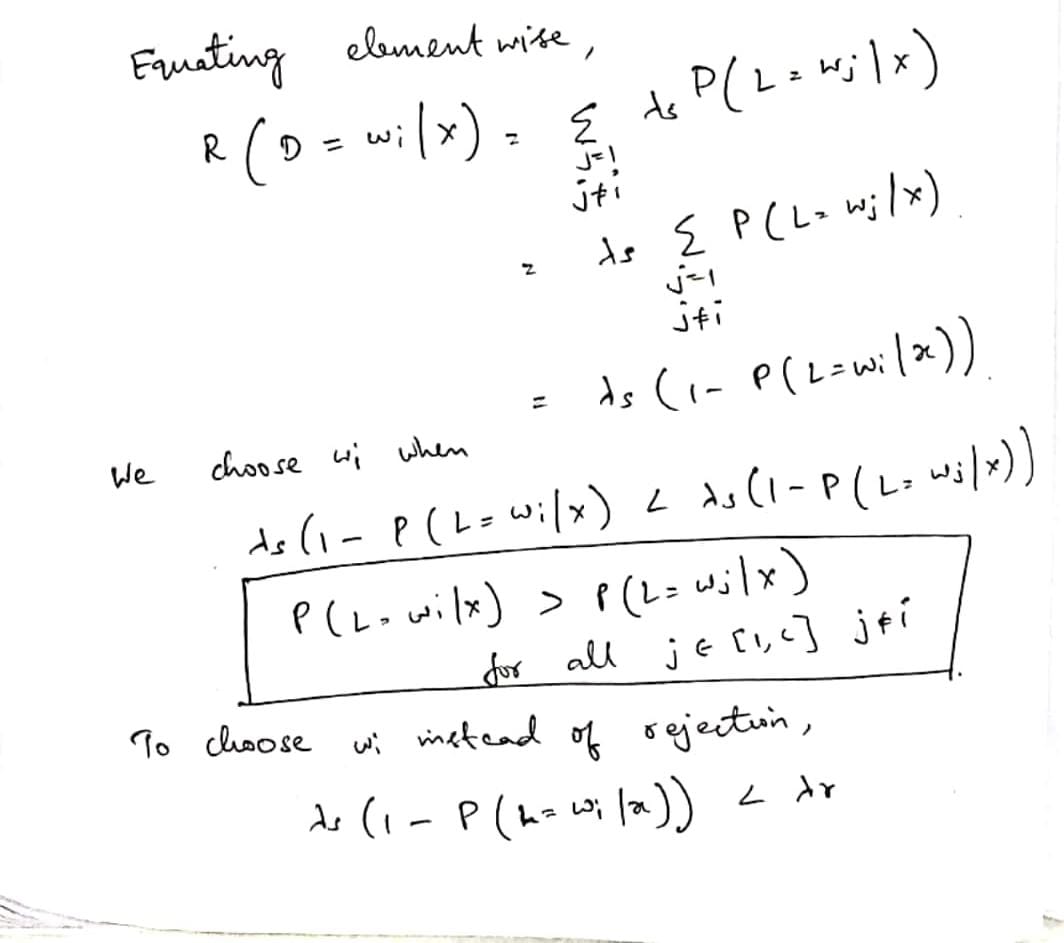 Equating element wise,
R(D = wi|x) = Σ λs P(L = wj|x)
j=1
j≠i
= λs Σ P(L = wj|x).
j=1
j≠i
= λs (1 - P(L = wi|x)).
We choose wi when
λs (1 - P(L = wi|x) < λs (1 - P(L = wj|x))
P(L = wi|x) > P(L = wj|x)
for all j ∈ [1, c] j≠i
To choose wi instead of rejection,
λs (1 - P(L = wi|x)) < λr